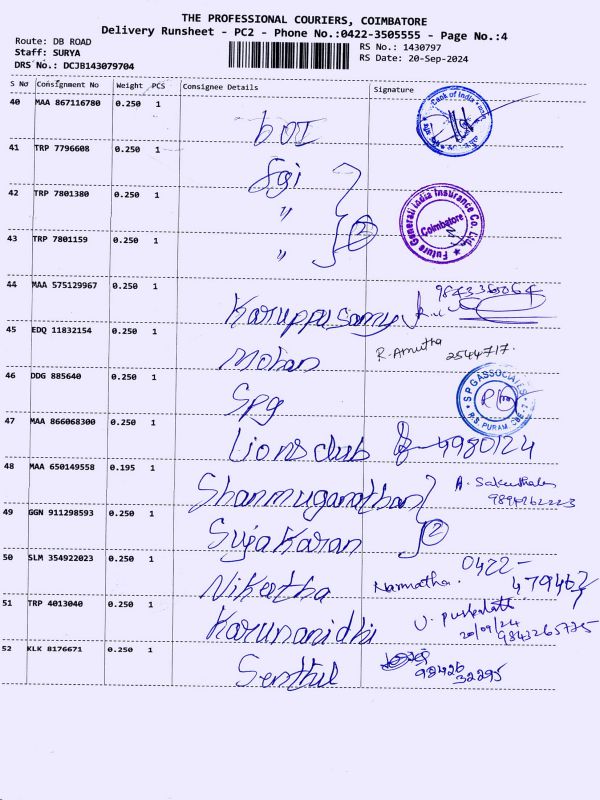 THE PROFESSIONAL COURIERS, COIMBATORE
Delivery Runsheet - PC2 - Phone No.:0422-3505555 - Page No.:4
Route: DB ROAD
RS No.: 1430797
Staff: SURYA
RS Date: 20-Sep-2024
DRS No.: DCJB143079704
S No Consignment No Weight PCS Consignee Details Signature
40 MAA 867116780 0.250 1 BOI
Bank of India
41 TRP 7796608 0.250 1 Fgi
42 TRP 7801380 0.250 1 " 2
Future Generali India Insurance Co. Ltd. Coimbatore
43 TRP 7801159 0.250 1 "
44 MAA 575129967 0.250 1 Karuppusamy
45 EDQ 11832154 0.250 1 Mohan R. Amutha 2544717.
46 DDG 885640 0.250 1 Spg
S P G ASSOCIATES R.S. PURAM, CBE-2
47 MAA 866068300 0.250 1 Lions club 4980124
48 MAA 650149558 0.195 1 Shanmuganathan A.
49 GGN 911298593 0.250 1 Sujakaran 2
50 SLM 354922023 0.250 1 Nikertha Narmatha. 0422-
51 TRP 4013040 0.250 1 Karunanidhi 20/09/24 9843265775
52 KLK 8176671 0.250 1 Senthil 98426 32295